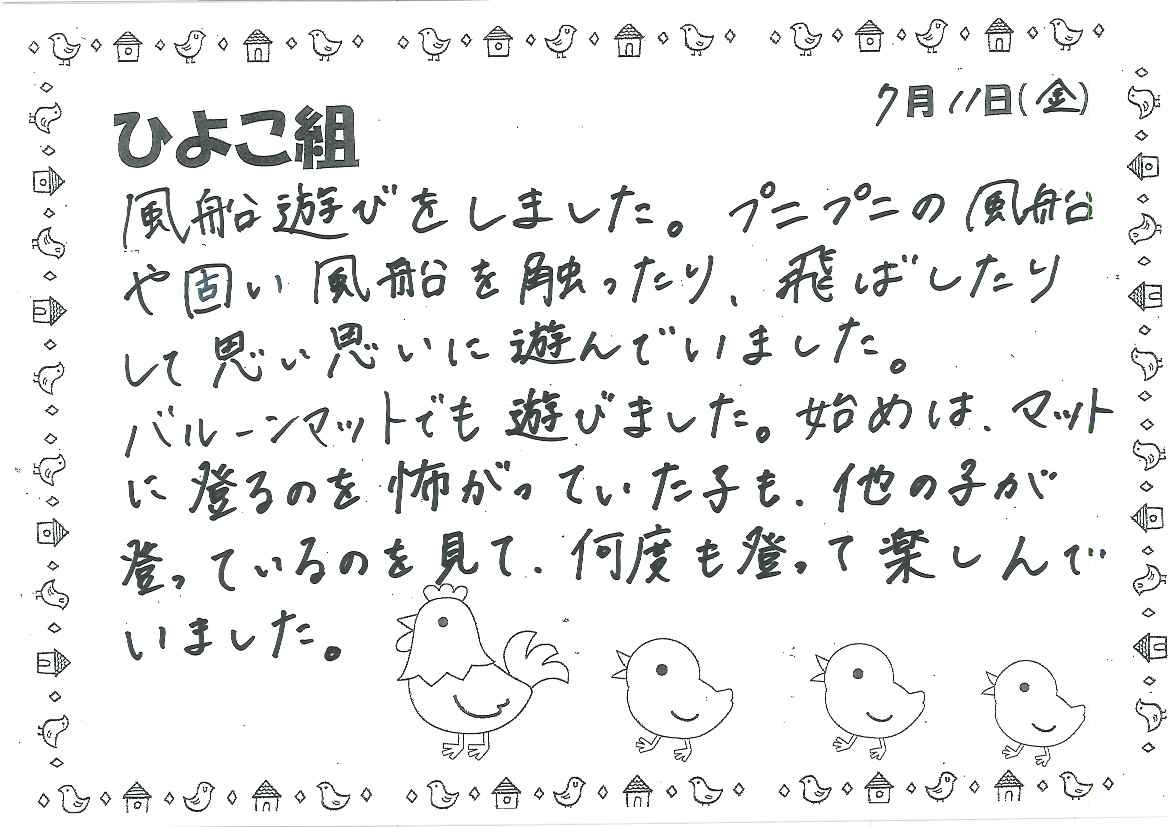 7月11日(金)
ひよこ組
風船遊びをしました。プニプニの風船
や固い風船を触ったり、飛ばしたり
して思い思いに遊んでいました。
バルーンマットでも遊びました。始めは、マット
に登るのを怖がっていた子も、他の子が
登っているのを見て、何度も登って楽しんで
いました。